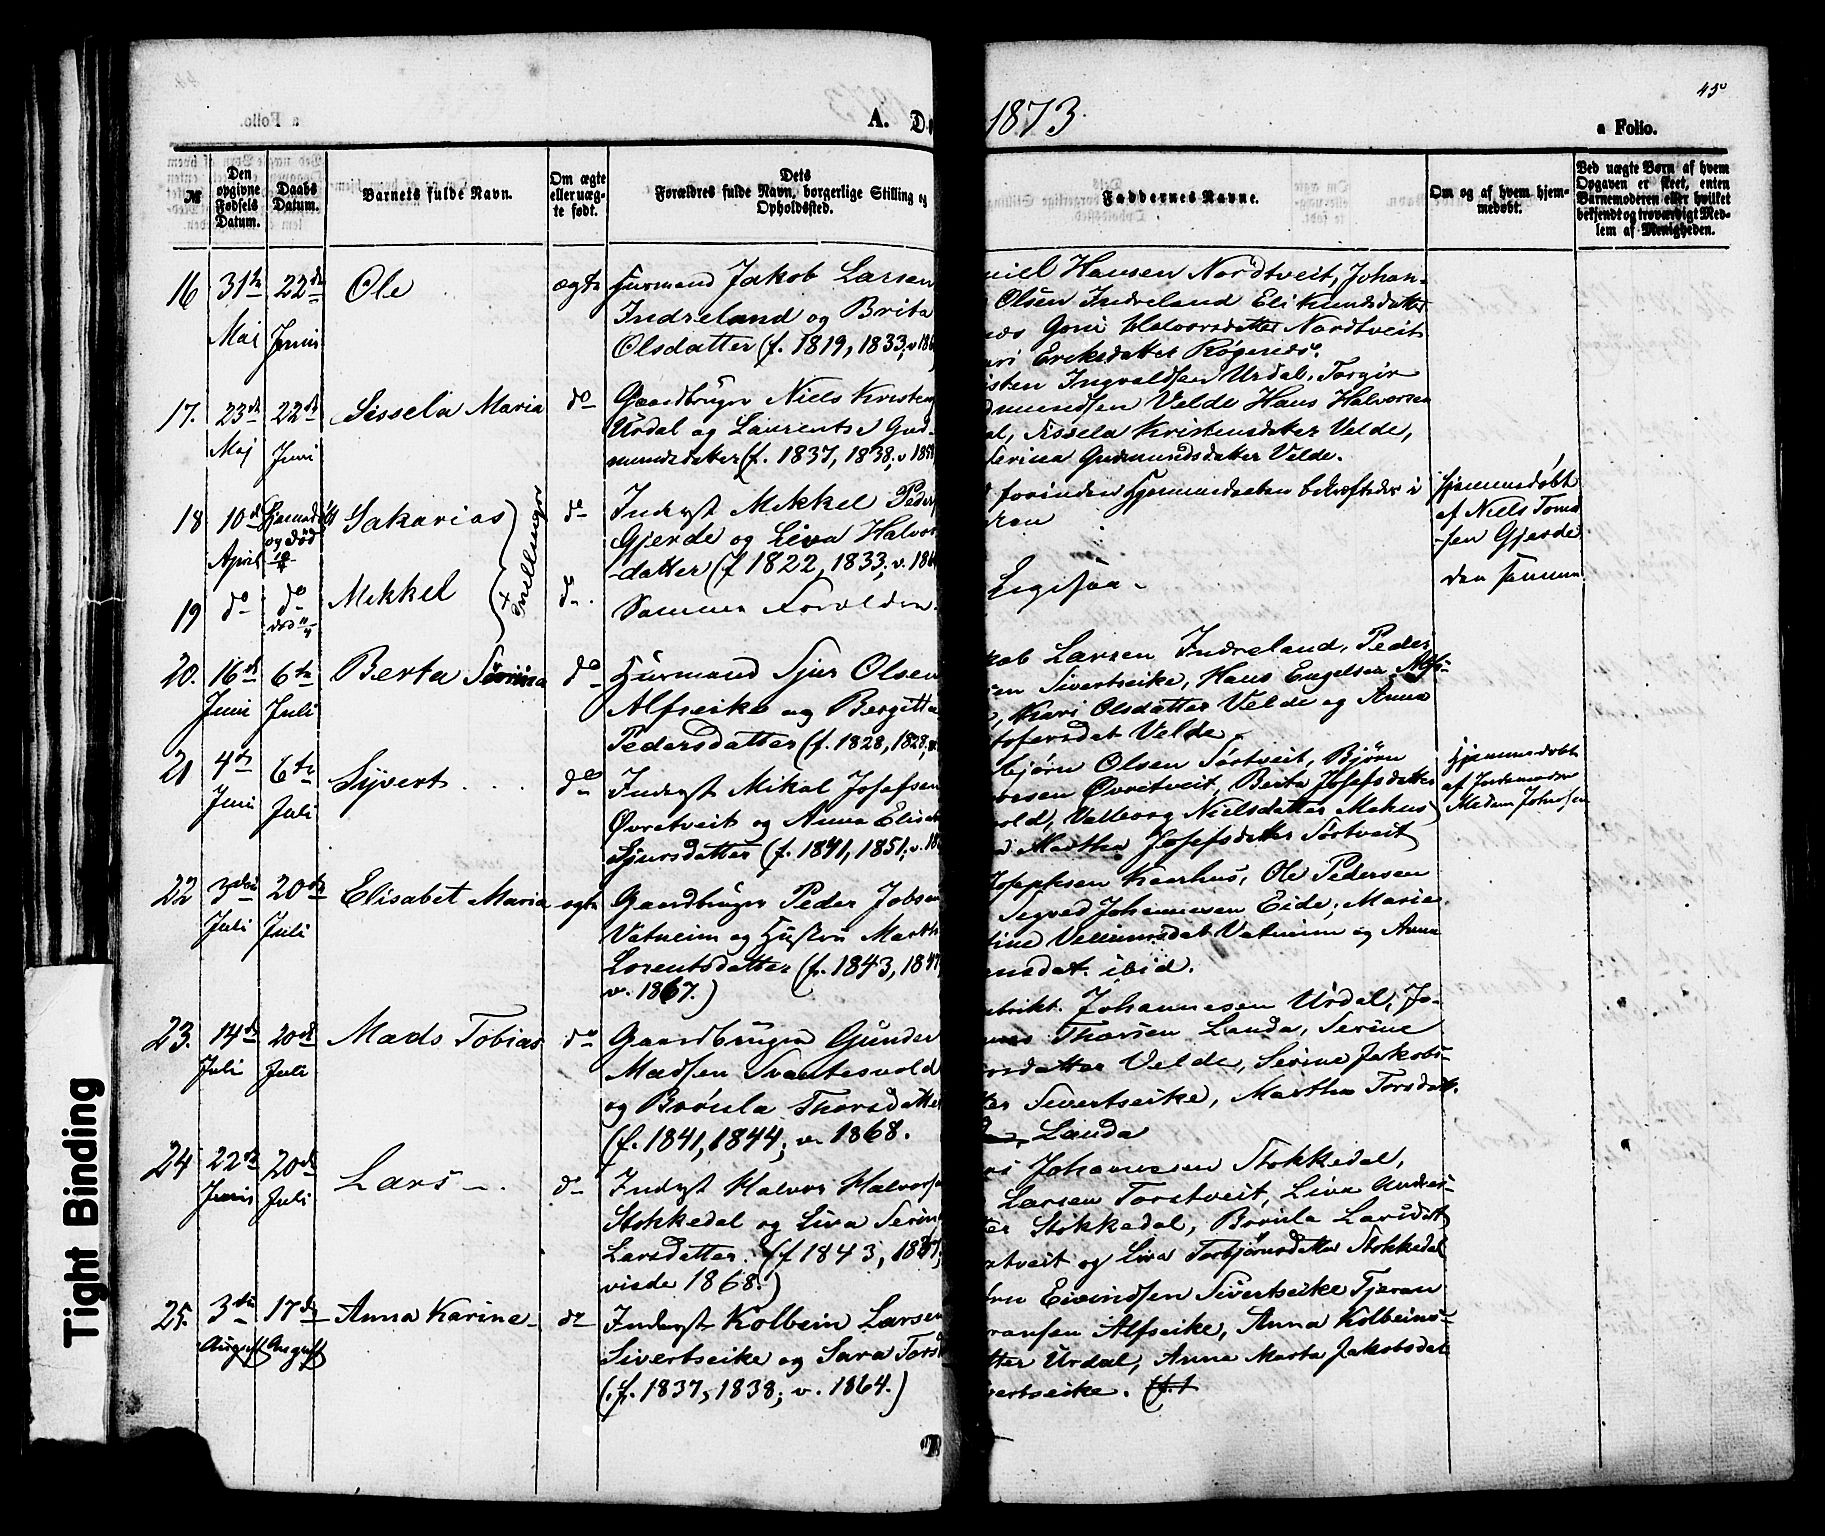 45
A. D
1873.
a Folio.
№
Den opgivne Fødsels Datum.
Daabs Datum.
Barnets fulde Navn.
Om ægte eller uægte født.
Dets Forældres fulde Navn, borgerlige Stilling og Opholdssted.
Faddernes Navne.
Om og af hvem hjemmedøbt.
Ved uægte Børn af hvem Opgaven er skeet, enten Barnemoderen eller hvilket bekjendt og troværdigt Medlem af Menigheden.
16 31te Maj 22de Juni Ole ægte Huusmand Jakob Larsen
Indreland og Brita
Olsdatter (f. 1819, 1833, v 18
niel Hansen Nordtveit, Johan-
Olsen Indreland Eli Knudsdatter
Goni Halvorsdatter Nordtveit
ari Eriksdatter
17. 23de Maj 22de Juni Sissela Maria do Gaardbruger Niels Kristen
Urdal og Laurentse Gud-
mundsdatter (f. 1837, 1838, v 185
isten Ingvaldsen Urdal, Torgir
dmundsen Velde Hans Halvorsen
al, Sissela Kristensdatter Velde,
Serina Gudmundsdatter Velde.
18 10de April Hjemmedøbt og død Sakarias do Inderst Mikkel Peder
Gjerde og Liva Halvor
-datter (f 1822, 1833, v. 186
forinden Hjemmedaaben bekræftedes i
Hjemmedøbt
af Niels Tomas
-sen Gjerde
den samme
Tvillinger
19 do do død Mikkel do. Samme Forældre.
Ligesaa.
20. 16de Juni 6te Juli Berta Sørina do Huusmand Sjur Olsen
Alfseike og Bergitta
Pedersdatter (f. 1828, 1828, v.
kob Larsen Indreland, Peder
sen Sivertseike, Hans Engelsen Alfs-
, Kari Olsdatter Velde og Anna
tofersdat Velde.
21 4de Juni 6te Juli Syvert do Inderst Mikal Josefsen
Øvretveit og Anna Elisa
Sjursdatter (f. 1841, 1851, v. 18
bjørn Olsen Sørtveit, Bjørn
Øvretveit, Berta Josefsdatter
old, Valborg Nielsdatter Mehus
Martha Josefsdatter Sørtveit
Hjemmedøbt
af Jordemoder
Madam Johnsen
22 3die Juli 20de Juli Elisabet Maria ægte Gaardbruger Peder Jobsen
Vatneim og Hustru Marth
Lorentsdatter (f. 1843, 1847,
v. 1867.)
Josephsen Kaarhus, Ole Pedersen
Johannesen Eide, Marie
tine Vellumsdat Vatneim og Anna
ensdat. ibid.
23. 14de Juli 20de Juli Mads Tobias do Gaardbruger Gunder
Madsen Svantesvold
og Brønla Thorsdatter
(f. 1841, 1844, v. 1868.
Johannesen Urdal, Jo-
Thorsen Landa, Serine
orsdatter Velde, Serine Jakobs-
ter Sivertseike, Martha Torsdatt.
Landa
24 22de Junis 20de Juli Lars do Inderst Halvor Halvorsen
Stokkedal og Liva Serine
Larsdatter. (f 1843, 1847,
viede 1868.)
Johannesen Stokkedal,
Larsen Torstveit, Liva Andres-
ter Stokkedal, Brønla Larsdatt
atveit og Liva Torbjørnsdatter Stokkedal
25. 3die August 17de August Anna Karine do Inderst Kolbein Larsen
Sivertseike og Sara Tors
(f. 1837, 1838, v. 1864.)
ørn Eivindsen Sivertseike Tjeran
ransen Alfseike, Anna Kolbeins-
tter Urdal, Anna Marta Jakobsdat
vertseike.
Tight Binding